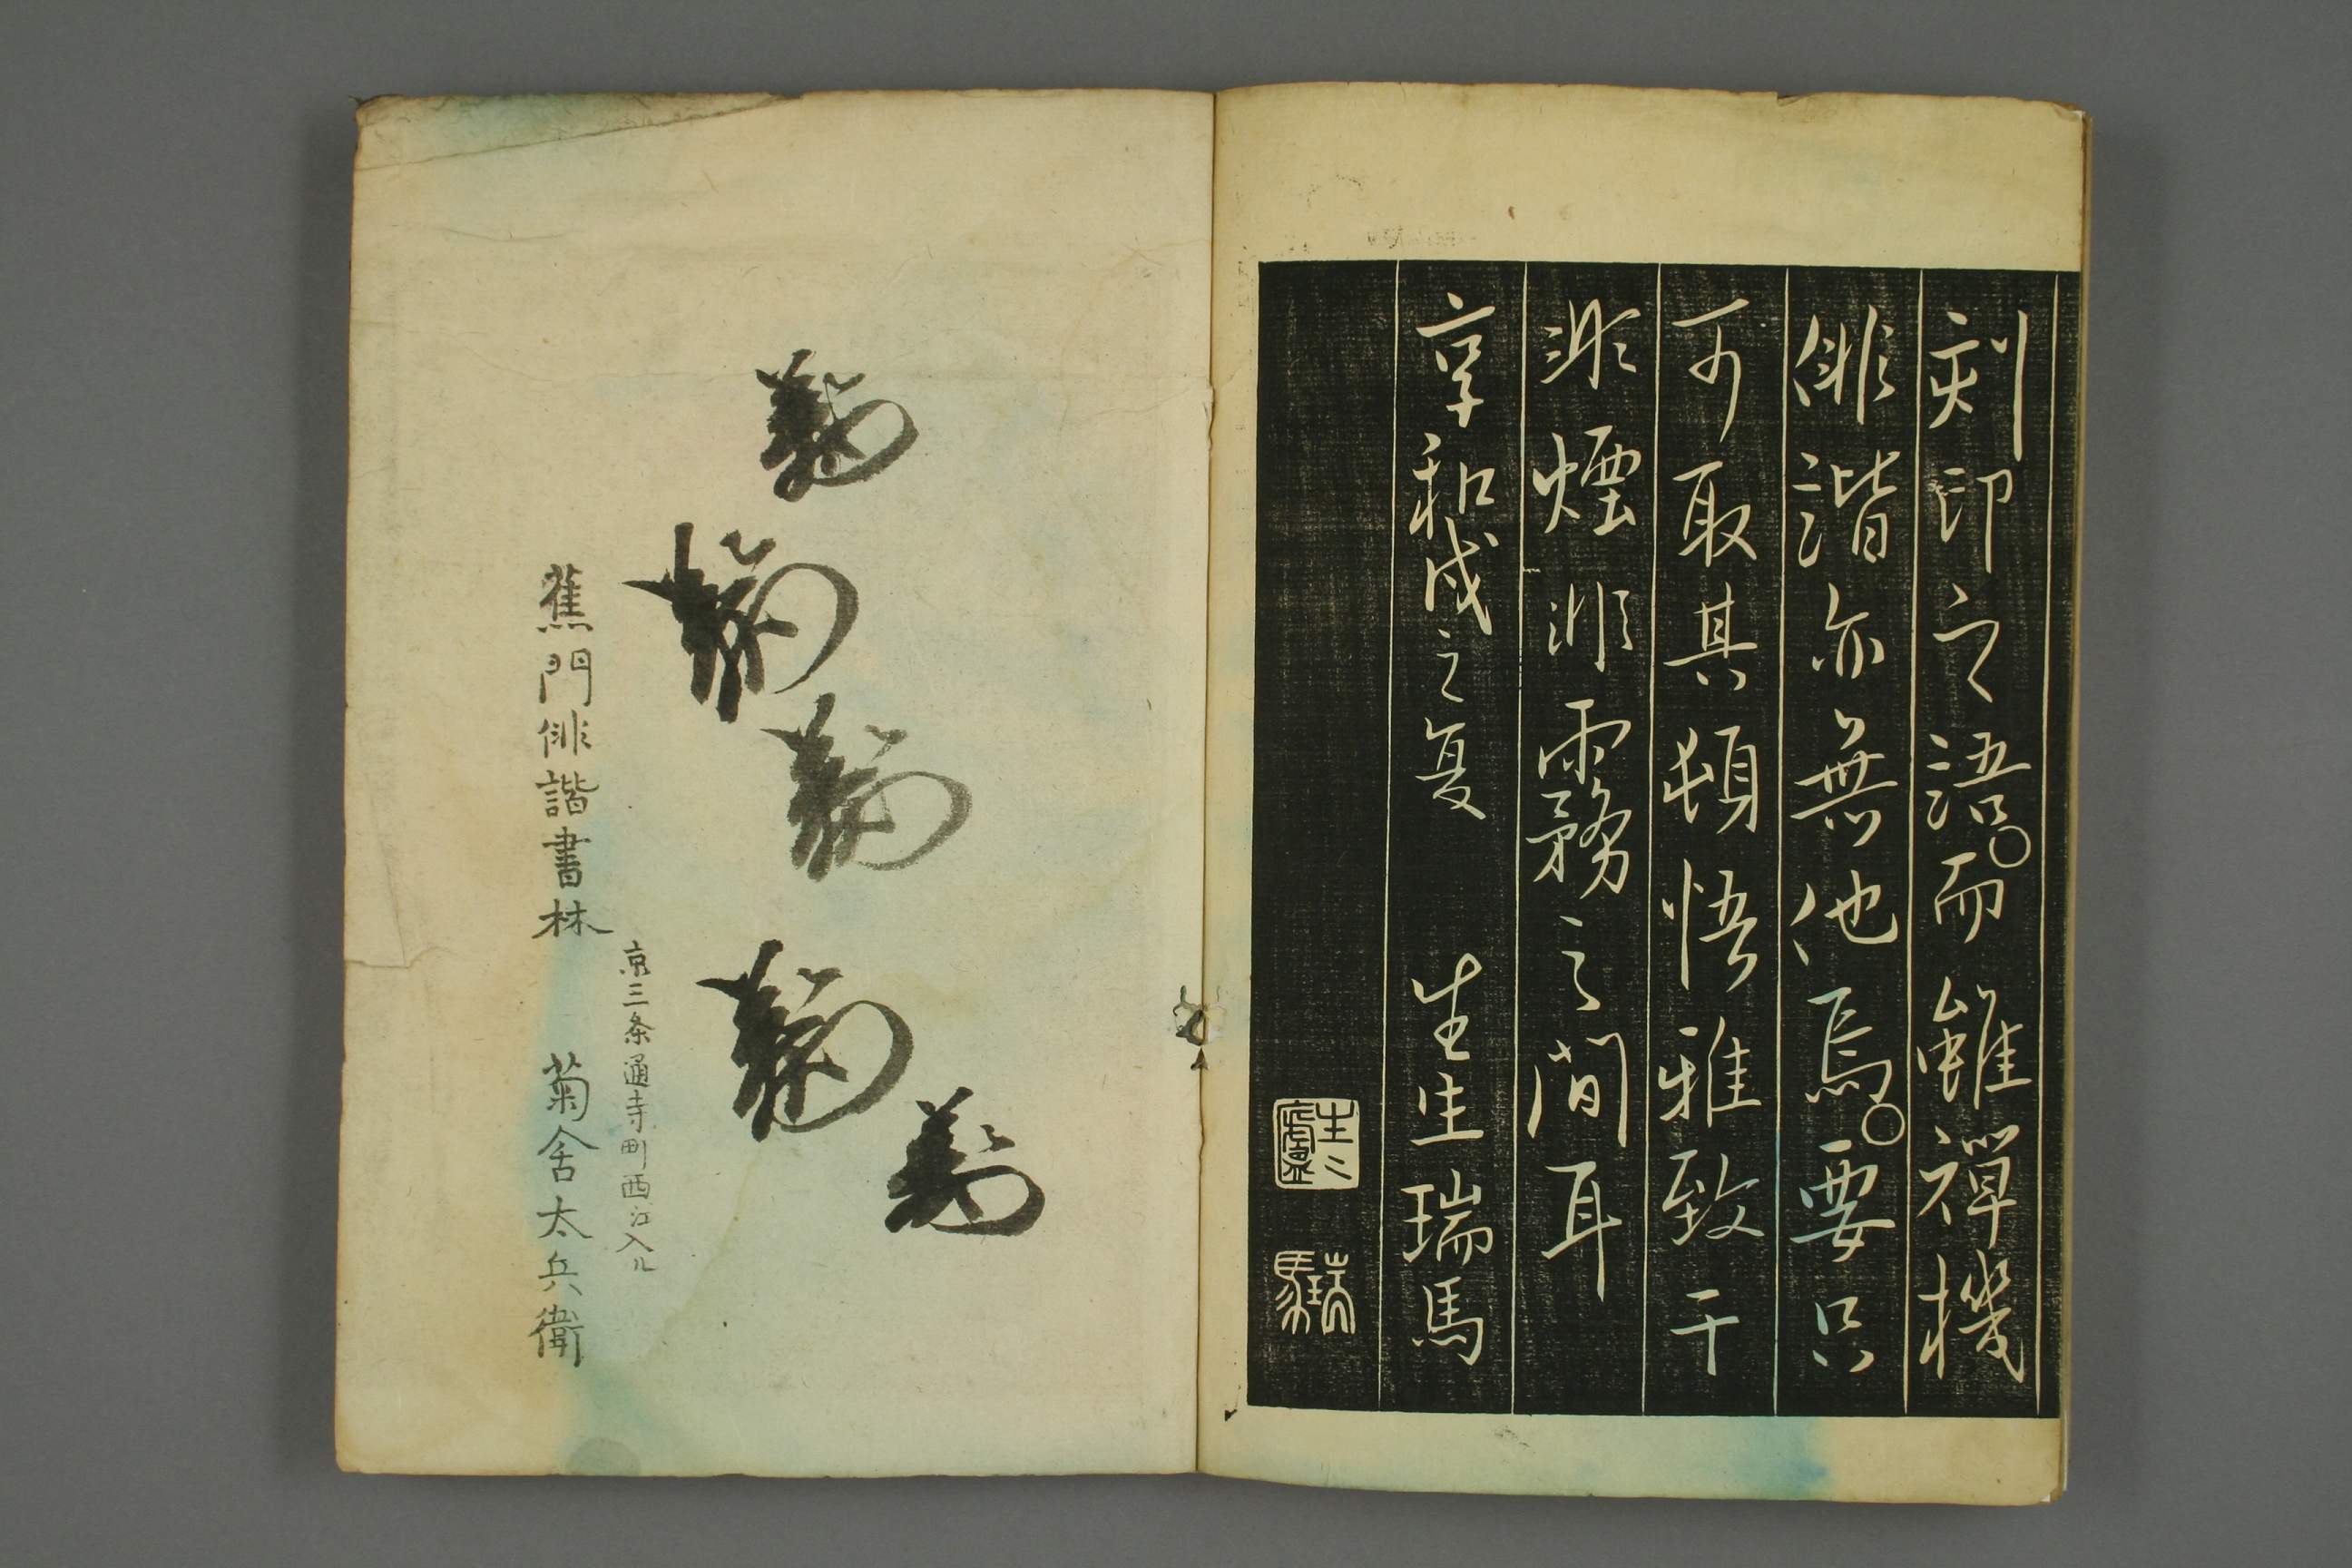 刻印之語。而雖禅機
俳諧亦無他焉。要只
可取其頓悟雅致于
非煙非霧之間耳
享和戌之夏　生生瑞馬
生〻
瑞馬
京三条通寺町西江入ル
蕉門俳諧書林　菊舎太兵衛